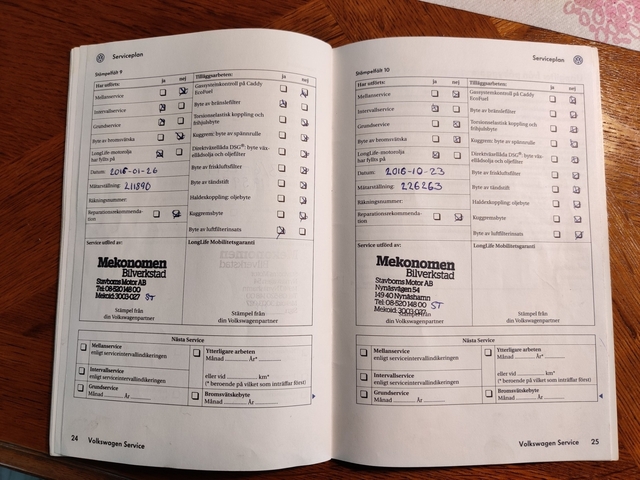 Serviceplan
Stämpelfält 9
Har utförts: ja nej
Mellanservice
Intervallservice
Grundservice
Byte av bromsvätska
LongLife-motorolja
har fyllts på
Datum: 2018-01-26
Mätarställning: 211890
Räkningsnummer:
Reparationsrekommenda-
tion
Tilläggsarbeten: ja nej
Gassystemkontroll på Caddy
EcoFuel
Byte av bränslefilter
Torsionselastisk koppling och
frihjulsbyte
Kuggrem: byte av spännrulle
Direktväxellåda DSG®: byte väx-
ellådsolja och oljefilter
Byte av friskluftsfilter
Byte av tändstift
Haldexkoppling: oljebyte
Kuggremsbyte
Byte av luftfilterinsats
Service utförd av:
Mekonomen
Bilverkstad
Stavborns Motor AB
Tel: 08-520 148 00
Mekoid: 3003-027 ST
Stämpel från
din Volkswagenpartner
LongLife Mobilitetsgaranti
Stämpel från
din Volkswagenpartner
Nästa Service
Mellanservice
enligt serviceintervallindikeringen
Intervallservice
enligt serviceintervallindikeringen
Grundservice
Månad År
Ytterligare arbeten
Månad År*
eller vid km*
(* beroende på vilket som inträffar först)
Bromsvätskebyte
Månad År
24 Volkswagen Service
Serviceplan
Stämpelfält 10
Har utförts: ja nej
Mellanservice
Intervallservice
Grundservice
Byte av bromsvätska
LongLife-motorolja
har fyllts på
Datum: 2018-10-23
Mätarställning: 226263
Räkningsnummer:
Reparationsrekommenda-
tion
Tilläggsarbeten: ja nej
Gassystemkontroll på Caddy
EcoFuel
Byte av bränslefilter
Torsionselastisk koppling och
frihjulsbyte
Kuggrem: byte av spännrulle
Direktväxellåda DSG®: byte väx-
ellådsolja och oljefilter
Byte av friskluftsfilter
Byte av tändstift
Haldexkoppling: oljebyte
Kuggremsbyte
Byte av luftfilterinsats
Service utförd av:
Mekonomen
Bilverkstad
Stavborns Motor AB
Nynäsvägen 54
149 40 Nynäshamn
Tel: 08-520 148 00 ST
Mekoid: 3003-027
Stämpel från
din Volkswagenpartner
LongLife Mobilitetsgaranti
Stämpel från
din Volkswagenpartner
Nästa Service
Mellanservice
enligt serviceintervallindikeringen
Intervallservice
enligt serviceintervallindikeringen
Grundservice
Månad År
Ytterligare arbeten
Månad År*
eller vid km*
(* beroende på vilket som inträffar först)
Bromsvätskebyte
Månad År
Volkswagen Service 25